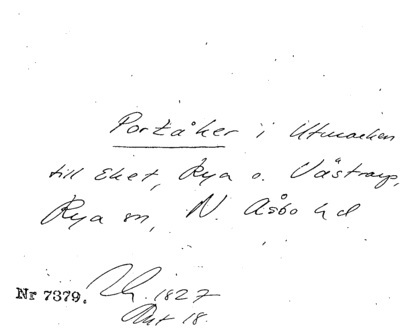 Portåker i Utmarken
till Eket, Rya o. Västraup,
Rya sn, N. Åsbo hd
Nr 7379. 1827
Akt 18.